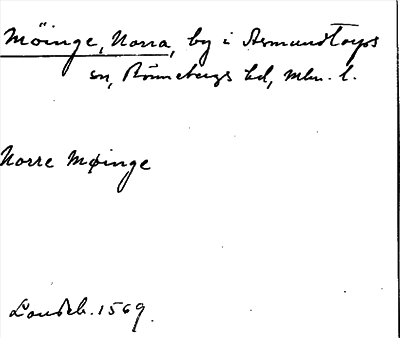 Möinge, Norra, by i Asmundtorps
sn, Rönnebergs hd, Mlm. l.
Norre Møinge
Landeb. 1569.